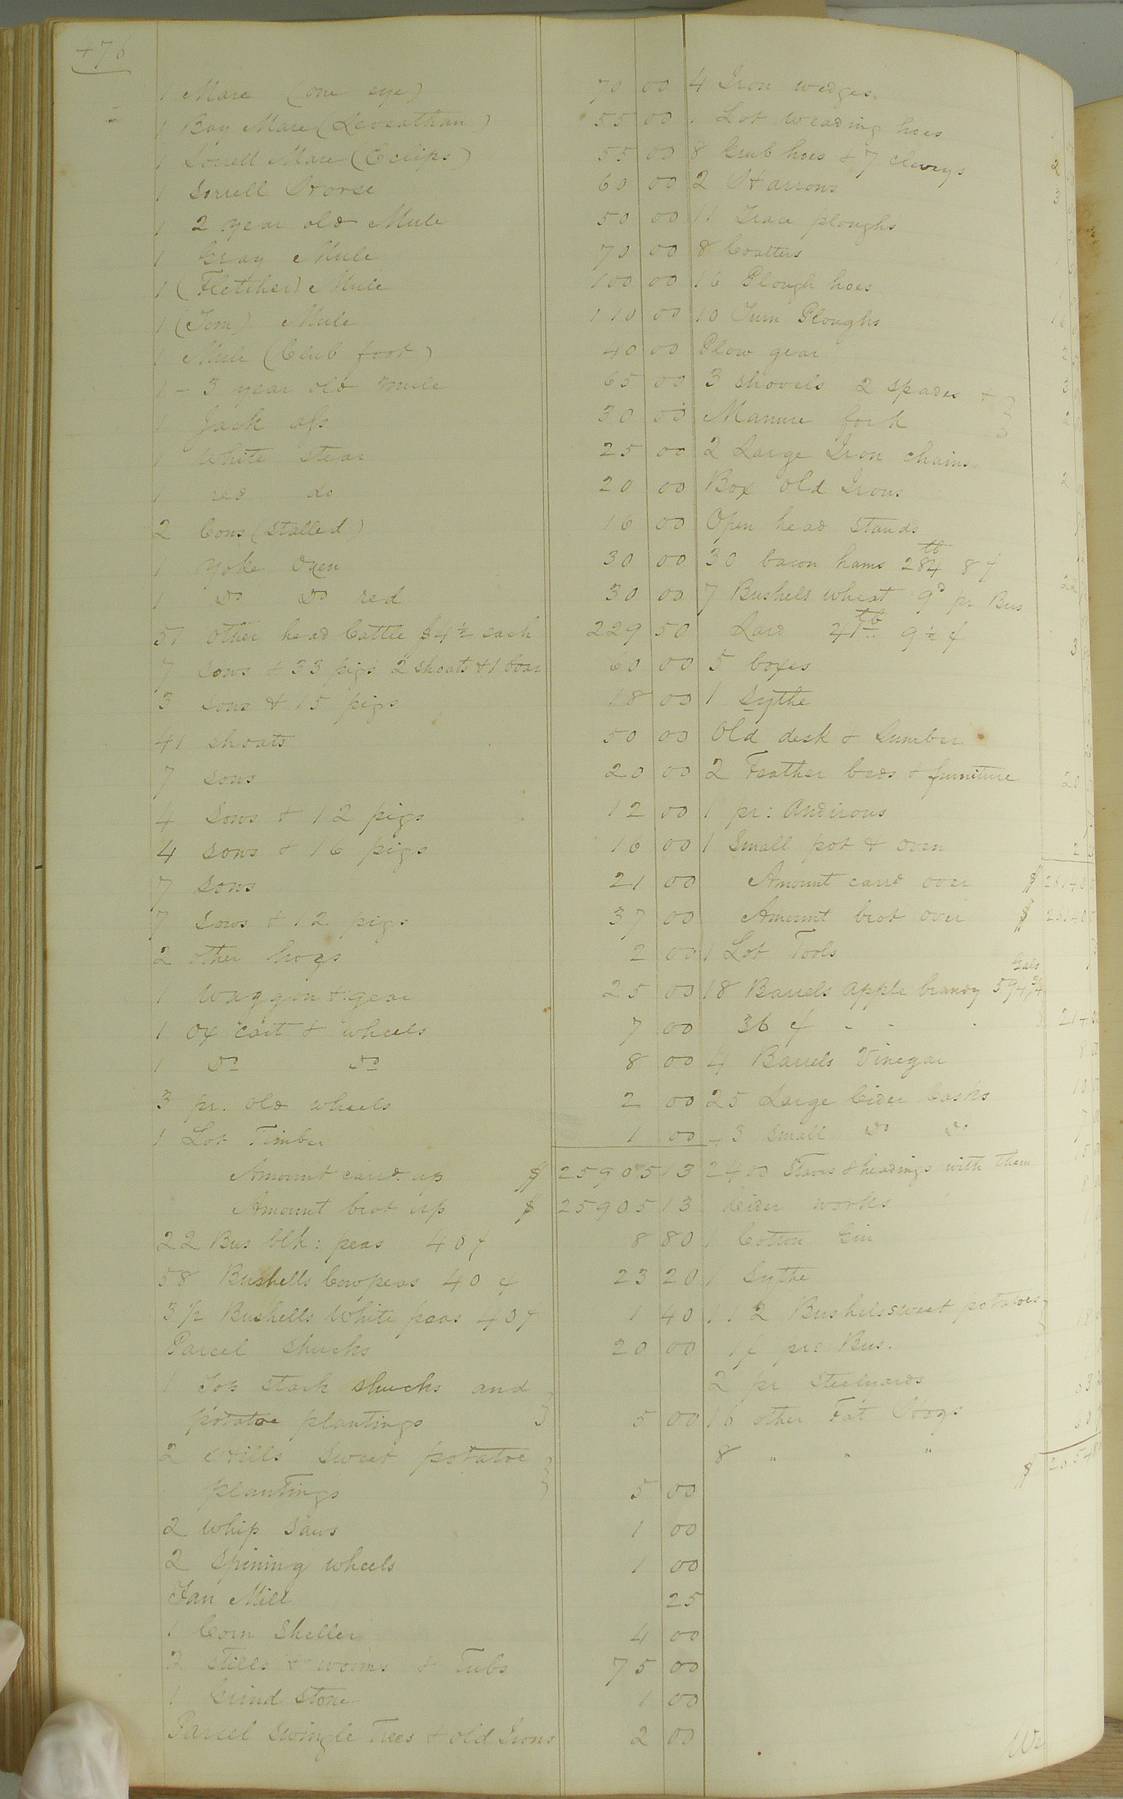 476
1 Mare (one eye) 70 00
1 Bay Mare (Leviathan) 55 00
1 Sorrell Mare (Eclips) 55 00
1 Sorrell Horse 60 00
1 2 year old Mule 50 00
1 Gray Mule 70 00
1 (Fletcher) Mule 100 00
1 (Tom) Mule 110 00
1 Mule (Club foot) 40 00
1 - 3 year old mule 65 00
1 Jack ass 30 00
1 White stear 25 00
1 red do 20 00
2 Cows (stalled) 16 00
1 Yoke Oxen 30 00
1 do do red 30 00
51 other head Cattle $4½ each 229 50
7 sows & 33 pigs 2 shoats & 1 boar 60 00
3 sows & 15 pigs 18 00
41 shoats 50 00
7 sows 20 00
4 sows & 12 pigs 12 00
4 sows & 16 pigs 16 00
7 sows 21 00
7 sows & 12 pigs 37 00
2 other hogs 2 00
1 Waggon & gear 25 00
1 ox cart & wheels 7 00
1 do do 8 00
3 pr. old wheels 2 00
1 Lot Timber 1 00
Amount carrd up $ 25905 13
Amount brot up $ 25905 13
22 Bus blk: peas 40 ¢ 8 80
58 Bushells Cowpeas 40 ¢ 23 20
3½ Bushells White peas 40 ¢ 1 40
Parcel shucks 20 00
1 Top stack shucks and
potatoe plantings 5 00
2 Hills sweet potatoe
plantings 5 00
2 whip saws 1 00
2 spining wheels 1 00
Fan Mill 25
1 Corn Sheller 4 00
2 stills & worms & Tubs 75 00
1 Grind Stone 1 00
Parcel Swingle Trees & old Irons 2 00
4 Iron wedges
1 Lot weading hoes
8 Grub hoes & 7 cleveys
2 Harrows
11 Trace ploughs
8 Coalters
16 Plough hoes
10 Turn Ploughs
Plow gear
3 shovels 2 spades &
Manure fork
2 Large Iron chains
Box old Irons
Open head stands
30 bacon hams 284 lb 8 ¢
7 Bushels wheat 9d pr Bus
Lard 41 lb 9½ ¢
5 boxes
1 Sythe
Old desk & Lumber
2 Feather beds & furniture
1 pr: Andirons
1 Small pot & oven
Amount carrd over $
Amount brot over $
1 Lot Tools
18 Barrels apple brandy 594¾ Gals
36 ¢
4 Barrels Vinegar
25 Large Cider Casks
3 small do do
2400 Staves & headings with them
Cider works
1 Cotton Gin
1 Sythe
2 Bushels sweet potatoes
pre Bus.
2 pr steelyards
16 other Fat Hogs
8 " " "
$